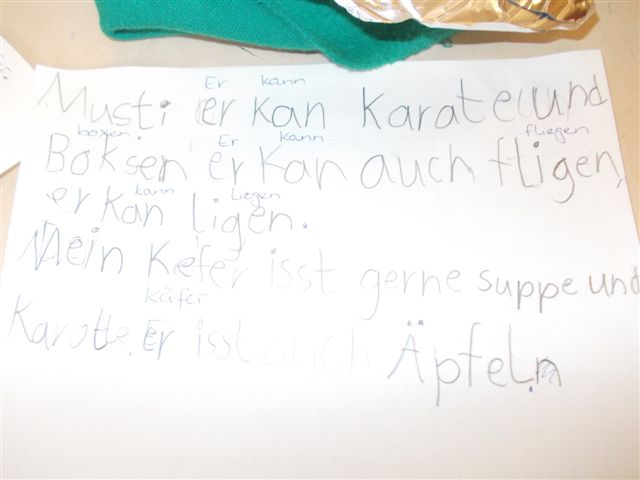 Er kann
Musti er kan Karate und
boxen. Er kann fliegen
Boksen er kan auch fligen,
kann liegen
er kan ligen.
Mein Kefer isst gerne suppe und
käfer
Karotte. Er isst auch Äpfeln